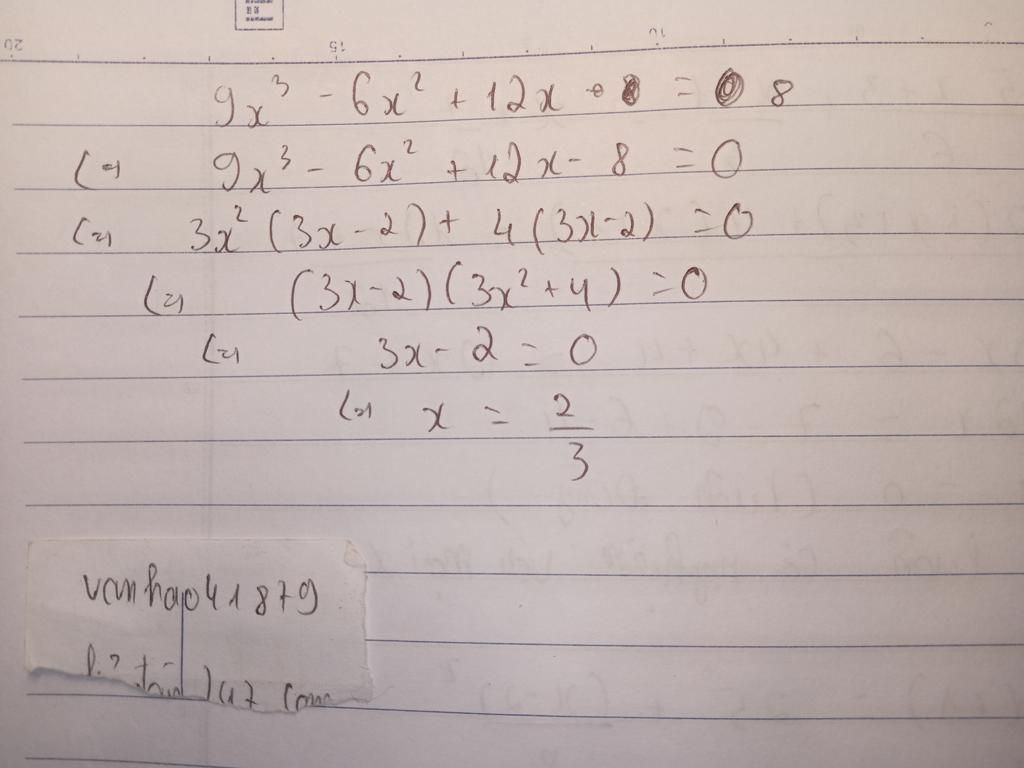 9x³ - 6x² + 12x = 8
(=) 9x³ - 6x² + 12x - 8 = 0
(=) 3x² (3x - 2) + 4 (3x - 2) = 0
(=) (3x - 2) (3x² + 4) = 0
(=) 3x - 2 = 0
(=) x = 2/3
vanhao41879